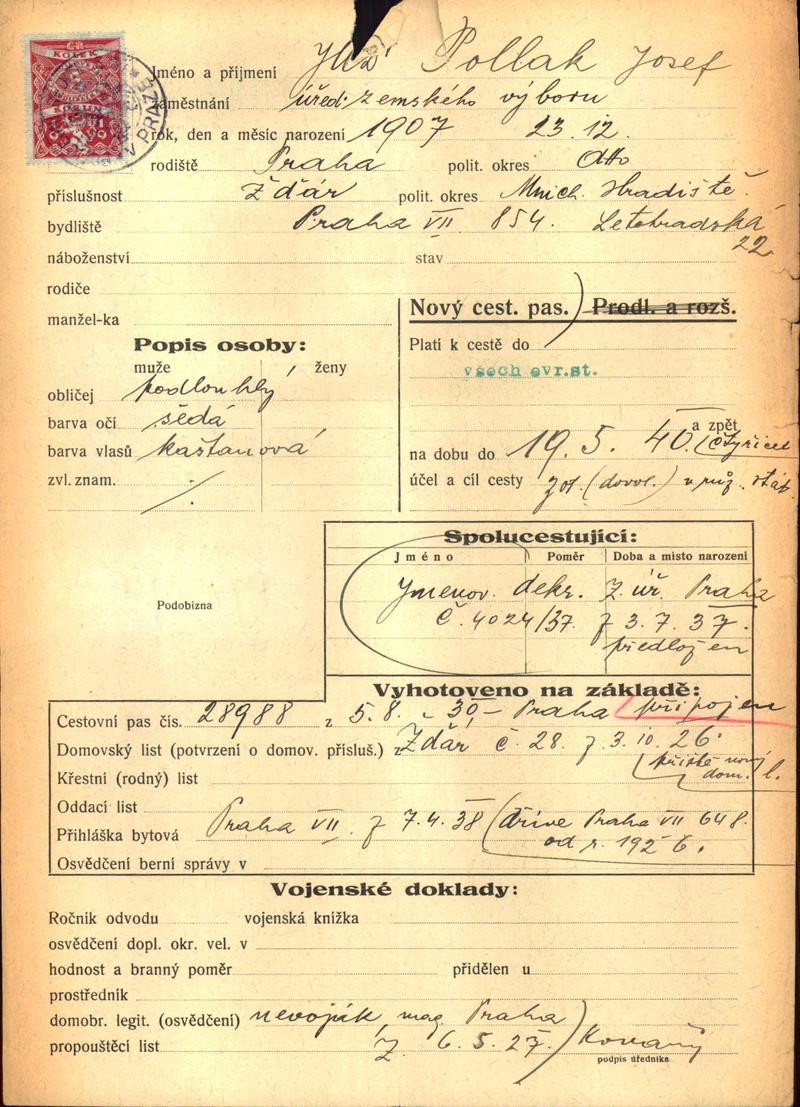 KOLEK
V PRAZE
Jméno a příjmení Pollak Josef
zaměstnání úřed. zemského výboru
rok, den a měsíc narození 1907 23.12.
rodiště Praha polit. okres dtto
příslušnost Žďár polit. okres Mnich. Hradiště
bydliště Praha VII. 854. Letohradská 22
náboženství stav
rodiče
manžel-ka
Popis osoby:
muže ženy
obličej podlouhlý
barva očí šedá
barva vlasů kaštanová
zvl. znam. ./.
Nový cest. pas. Prodl. a rozš.
Platí k cestě do
všech evr.st.
a zpět
na dobu do 19. 5. 40. (čtyřicet
účel a cíl cesty zot. (dovol.) v růz. stát.
Podobizna
Spolucestující:
Jméno Poměr Doba a místo narození
Jmenov. dekr. Z. úř. Praha
č. 4024/37 z 3.7.37.
předložen
Vyhotoveno na základě:
Cestovní pas čís. 28988 z 5.8. 30 – Praha připojen
Domovský list (potvrzení o domov. přísluš.) z Žďár č. 28. z 3. 10. 26.
(příště nový
dom. l.
Křestní (rodný) list
Oddací list
Přihláška bytová Praha VII. z 7.4.38 (dříve Praha VII 648.
od r. 1926.
Osvědčení berní správy v
Vojenské doklady:
Ročník odvodu vojenská knížka
osvědčení dopl. okr. vel. v
hodnost a branný poměr přidělen u
prostředník
domobr. legit. (osvědčení) nevoják, mag. Praha
propouštěcí list z 6.5.27.
podpis úředníka